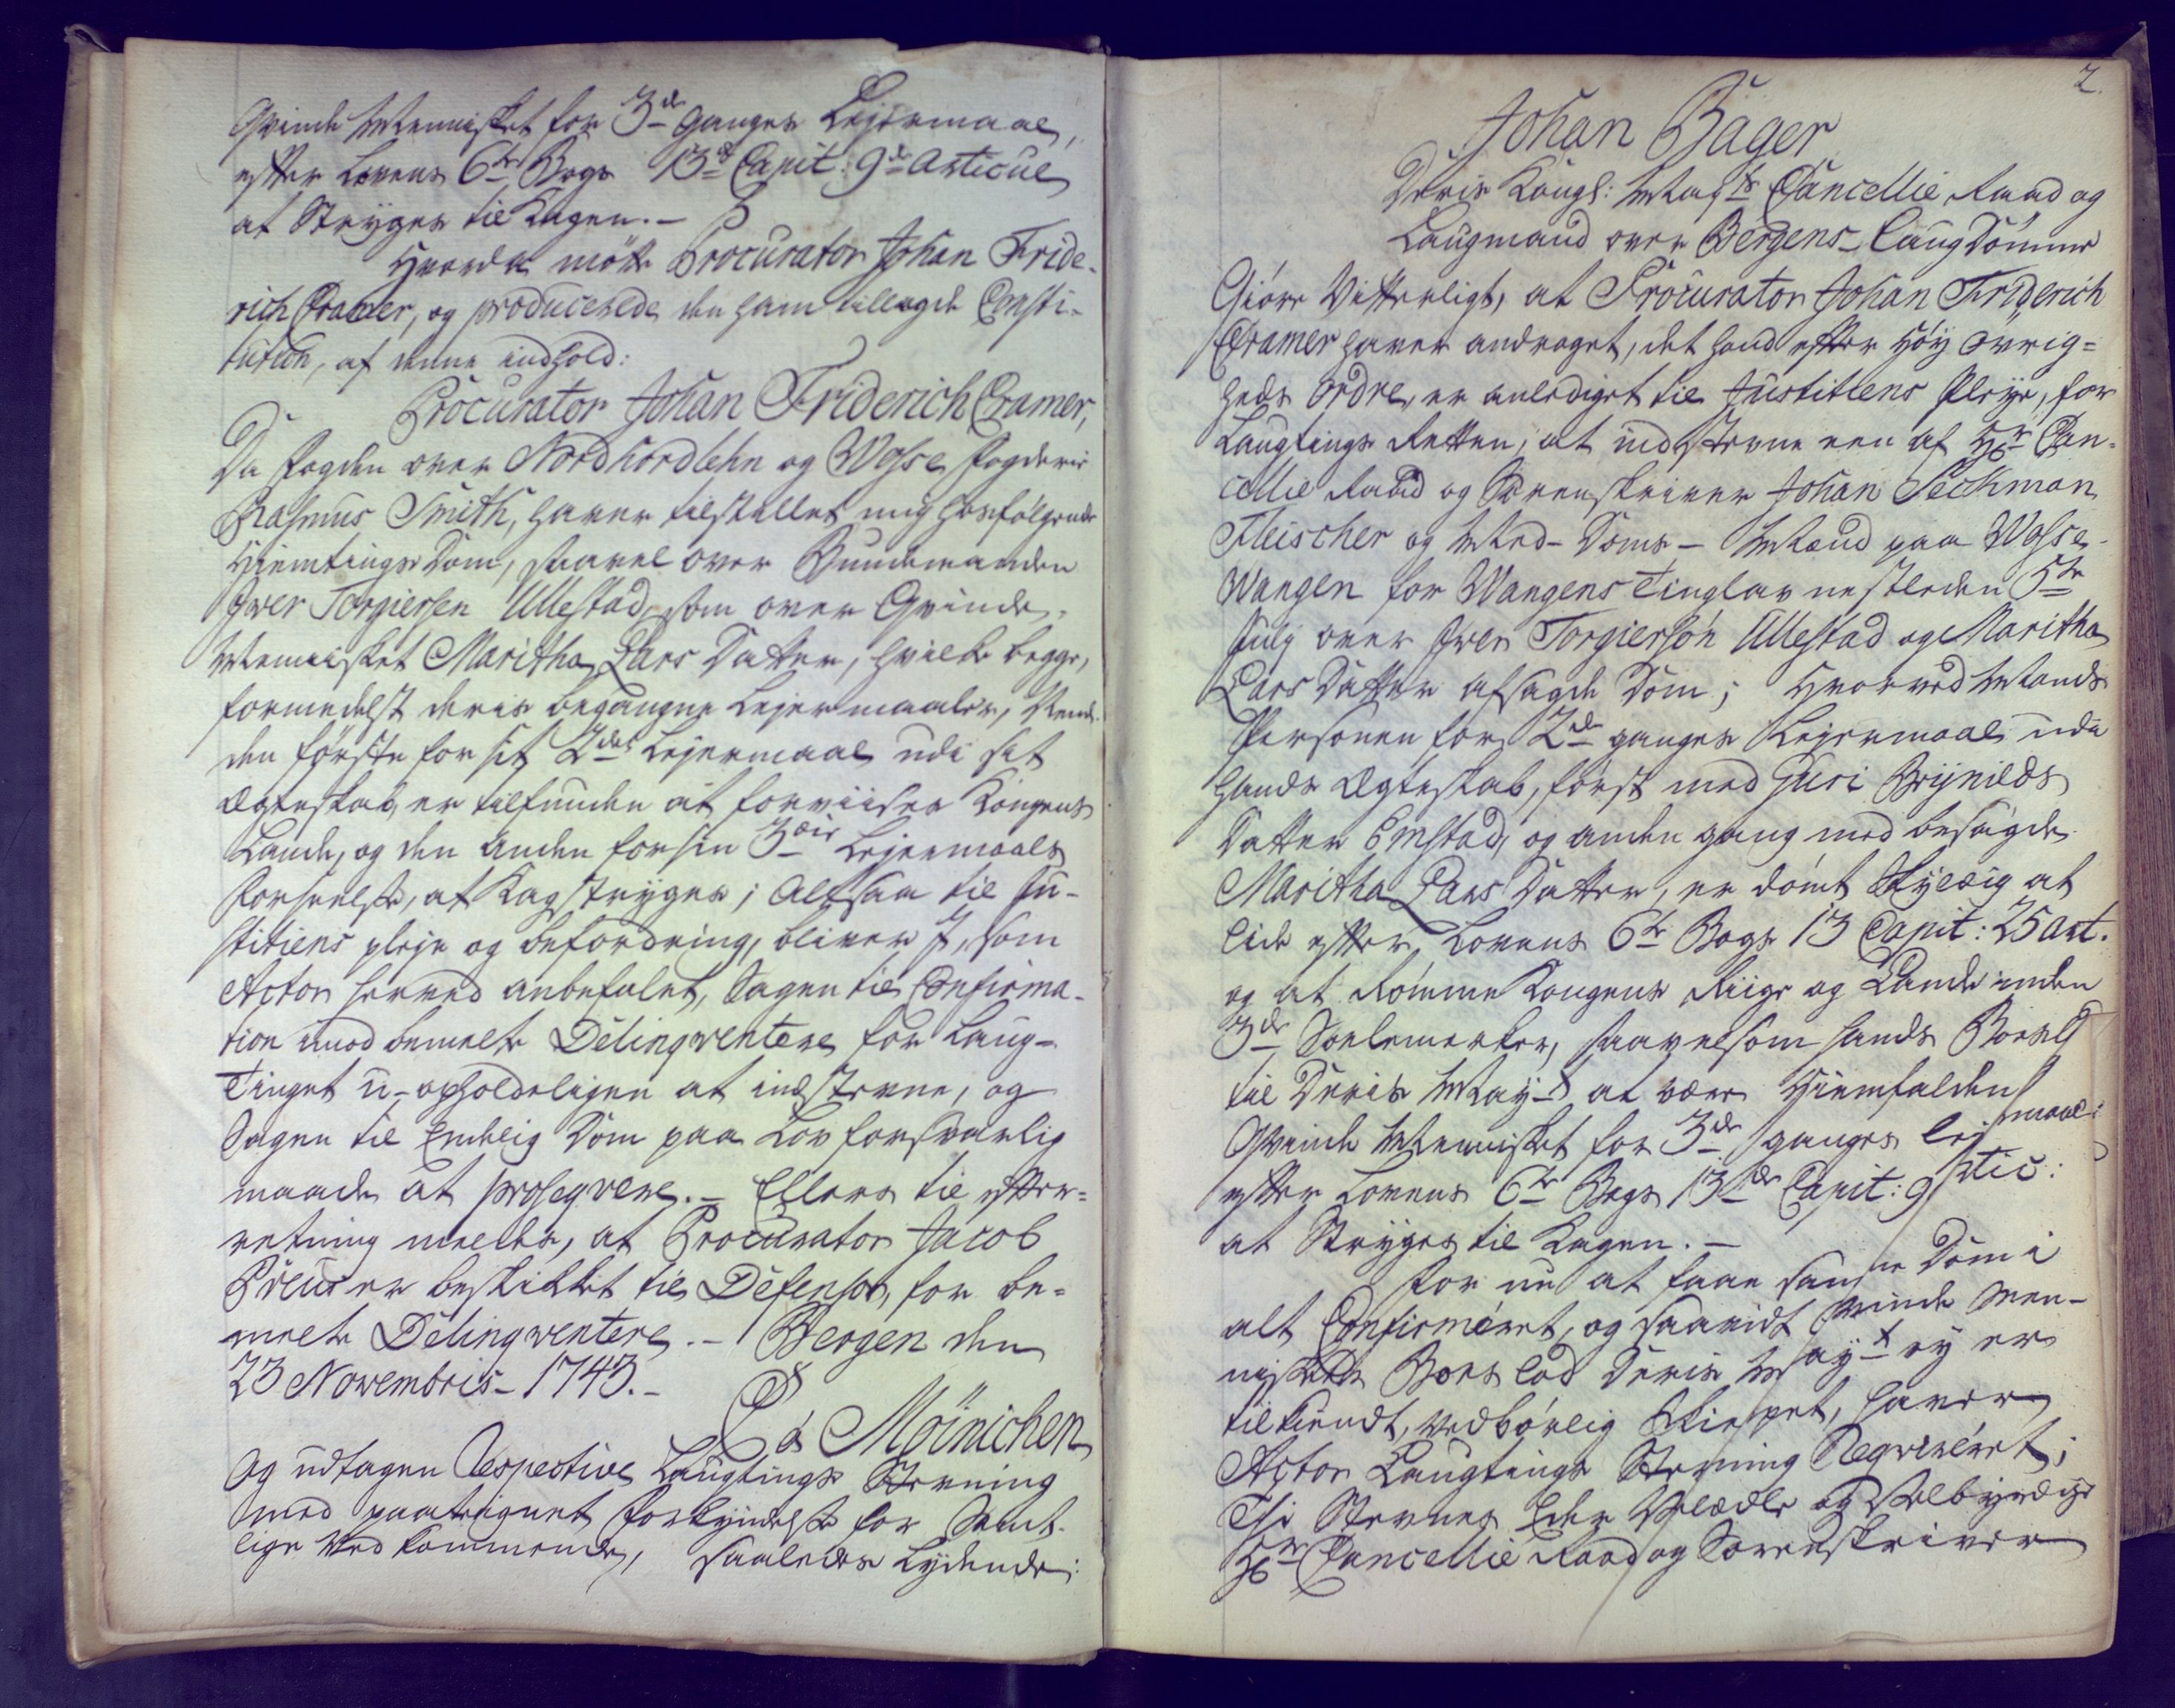 Qvinde Mennisket for 3de ganges Lejermaal,
efter Lovens 6te Bogs 13de Capit: 9de Articul
at Stryges til Kagen.–
Hvorda mötte Procurator Johan Fride-
rich Cramer, og producerede den ham tillagde Consti-
tution, af denne indhold:
Procurator Johan Friderich Cramer,
Da Fogden over Nordhordlehn og Wosse Fogderie
Rasmus Smith, haver tilstillet mig hosfølgende
Hiemtings Dom, saavel over Bundemanden
Iver Torgiersen Ullestad, som over Qvinde-
Mennisket Maritha Lars Datter, hvilke begge,
formedelst deris begangne Lejermaaler, Nemb.
den förste for sit 2det Lejermaal udi sit
Ægteskab, er tilfunden at forviises Kongens
Lande, og den Anden for sin 3die Lejermaals
Forseelse, at Kagstryges; Altsaa til Ju-
stitiens pleje og befordring, bliver I, som
Actor herved anbefalet, Sagen til Confirma-
tion imod bemelte Delinqventere for Laug-
Tinget u-opholdeligen at indstevne, og
Sagen til Endelig Dom paa Lov forsvarlig
maade at proseqvere.– Ellers til efter-
retning meldes, at Procurator Jacob
Preus er beskikket til Defensor, for be-
melte Delinqventere.– Bergen den
23 Novembris– 1743.–
C á Möinichen
Og udtagen Respective Laugtings Stevning
med paategnet Forkyndelse for Samt-
lige Vedkommende, saaledes Lydende:
2.
Johan Bager
Deris Kongl: Mayts Cancellie Raad og
Laugmand over Bergens– Laug Dömme
Giöre Vitterligt, at Procurator Johan Friderich
Cramer haver andraget, det hand efter Höy Övrig=
heds Ordre, er anlediget til Justitiens Pleye, for
Laugtings Retten, at indstevne een af Hr Can-
cellie Raad og Sorenskriver Johan Sechman
Fleischer og Med– Doms– Mænd paa Wosse-
Wangen for Wangens Tinglav nestleden 5te
July over Iver Torgiersön Ullestad og Maritha
Lars Datter afsagde Dom; Hvorved Mands
Personen for 2de ganges Lejermaal udi
hands Ægteskab, först med Guri Brynilds
Datter Emstad, og anden gang med besagde
Maritha Lars Datter, er dömt Skyldig at
lide efter Lovens 6te Bogs 13 Capit: 25 Art.
og at Römme Kongens Riige og Lande inden
3de Soelemerker, saavelsom hands Boeslod
til Deris Mayt at være Hiemfalden
Qvinde Mennisket for 3de ganges lej maal
efter Lovens 6te Bogs 13de Capit: 9 rtic:
at Stryges til Kagen.–
For nu at faae samme Dom i
alt Confirmeret, og saavidt Qvinde Men-
niskets Boes lod Deris Mayt ey er
tilkiendt, vedbörlig Skierpet, haver
Actor Laugtings Stevning Reqvireret;
Thi Stevnes Eder Velædle og Velbyrdige
Hr Cancellie Raad og Sorenskriver